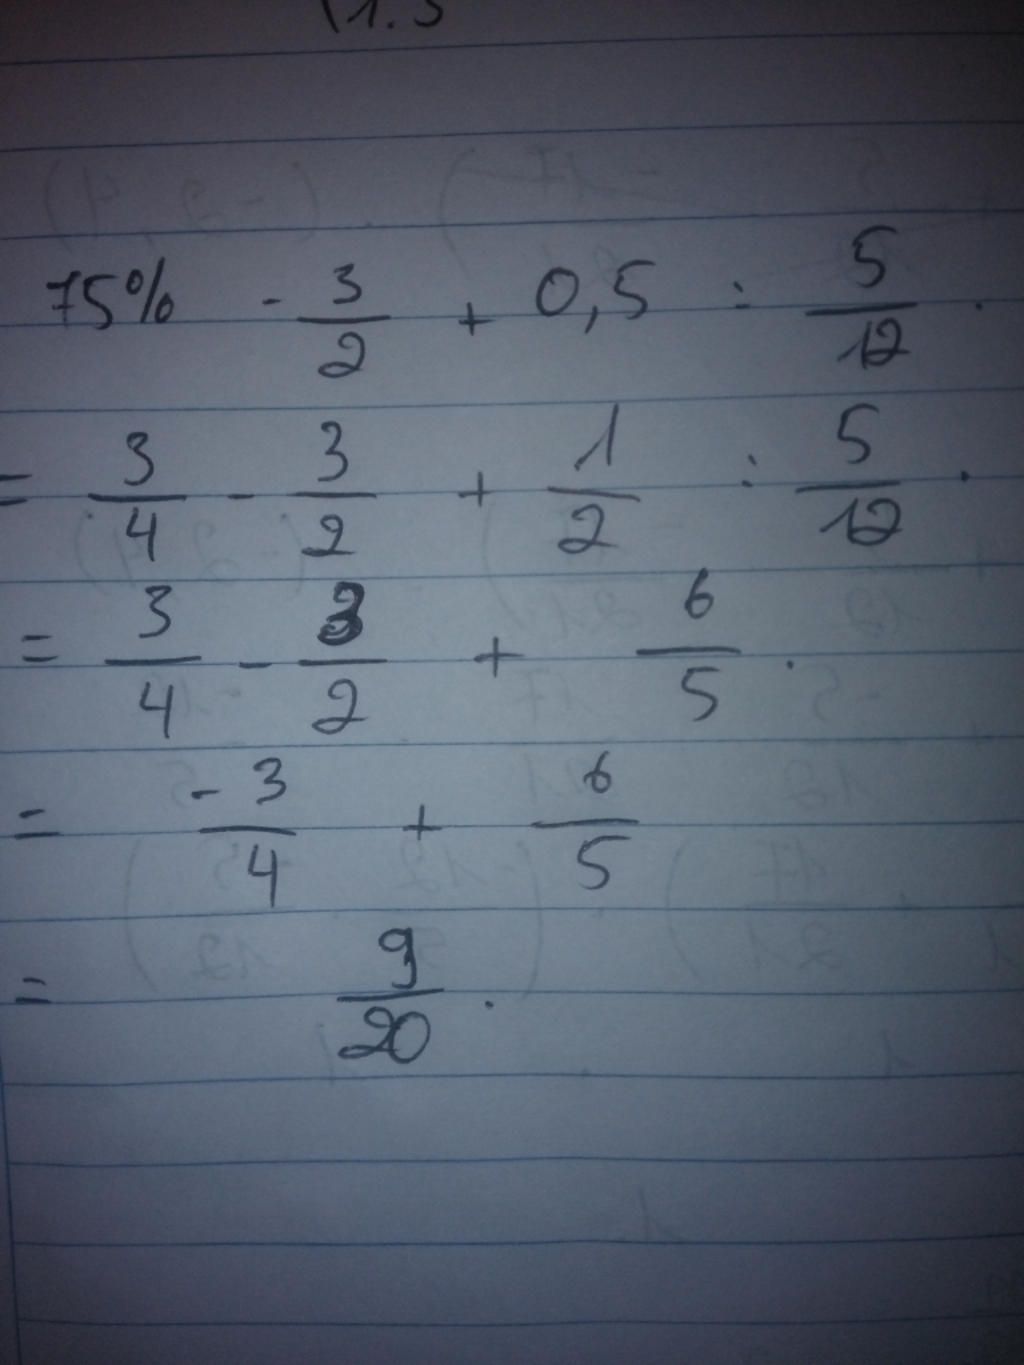 (1.5
75% - 3/2 + 0,5 : 5/12 .
= 3/4 - 3/2 + 1/2 : 5/12 .
= 3/4 - 3/2 + 6/5 .
= -3/4 + 6/5
= 9/20 .